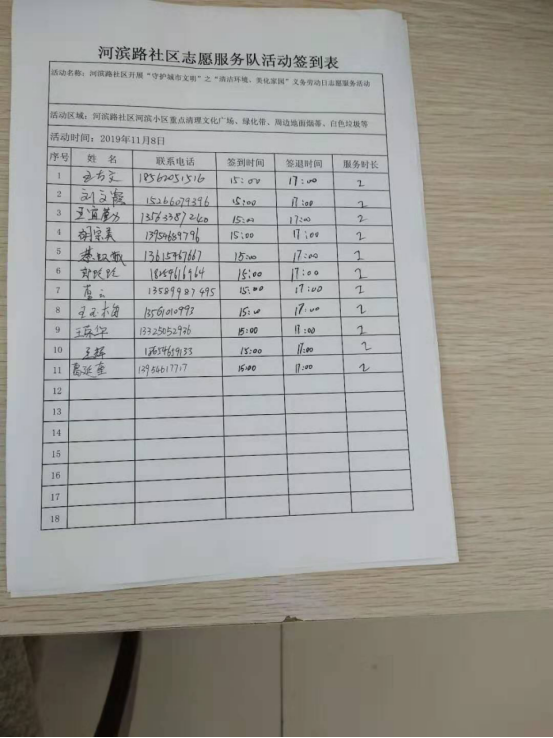 河滨路社区志愿服务队活动签到表
活动名称：河滨路社区开展“守护城市文明”之“清洁环境、美化家园”义务劳动日志愿服务活动
活动区域：河滨路社区河滨小区重点清理文化广场、绿化带、周边地面烟蒂、白色垃圾等
活动时间：2019年11月8日
序号 姓 名 联系电话 签到时间 签退时间 服务时长
1 18562051516 15:00 17:00 2
2 刘文霞 15266079396 15:00 17:00 2
3 15:00 17:00 2
4 胡宗美 15:00 17:00 2
5 13615467667 15:00 17:00 2
6 15:00 17:00 2
7 13589987495 15:00 17:00 2
8 13561010993 15:00 17:00 2
9 13325052976 15:00 17:00 2
10 15:00 17:00 2
11 13954617717 15:00 17:00 2
12
13
14
15
16
17
18